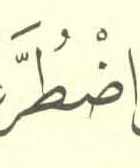 اضْطُرَّ